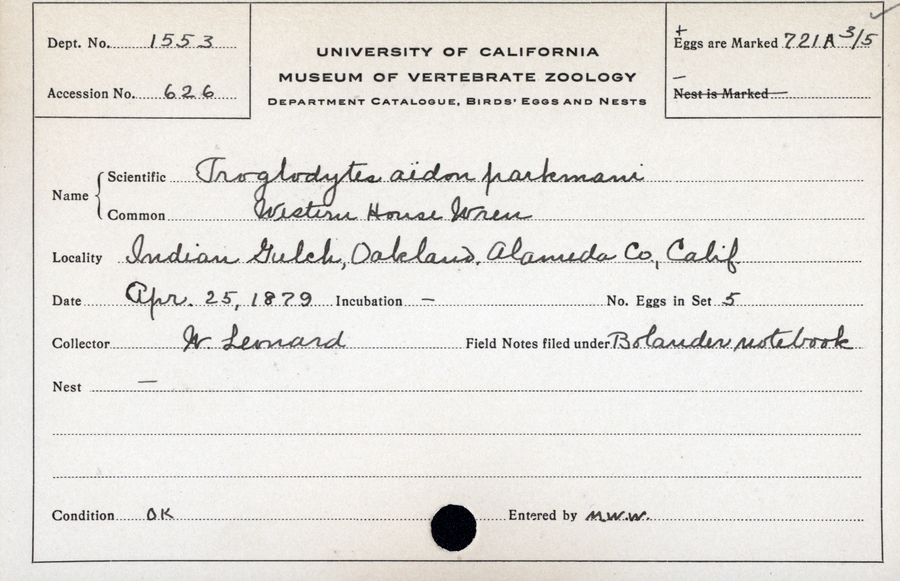 Dept. No. 1553
Accession No. 626
UNIVERSITY OF CALIFORNIA
MUSEUM OF VERTEBRATE ZOOLOGY
DEPARTMENT CATALOGUE, BIRDS' EGGS AND NESTS
+
Eggs are Marked 721A 3/5
–
Nest is Marked
Name { Scientific Troglodytes aïdon parkmani
Common Western House Wren
Locality Indian Gulch, Oakland, Alameda Co., Calif
Date Apr. 25, 1879 Incubation – No. Eggs in Set 5
Collector W. Leonard Field Notes filed under Bolander notebook
Nest —
Condition OK Entered by M.W.W.